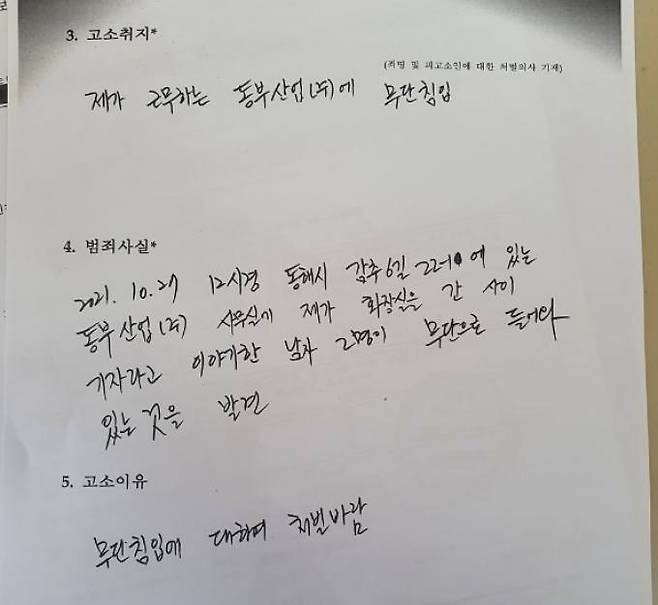 3. 고소취지*
(죄명 및 피고소인에 대한 처벌의사 기재)
제가 근무하는 동부산업(주)에 무단침입
4. 범죄사실*
2021. 10. 27 12시경 동해시 감추6길 22-1 에 있는
동부산업(주) 사무실에 제가 화장실을 간 사이
기자라고 이야기한 남자 2명이 무단으로 들어와
있는 것을 발견
5. 고소이유
무단침입에 대하여 처벌바람